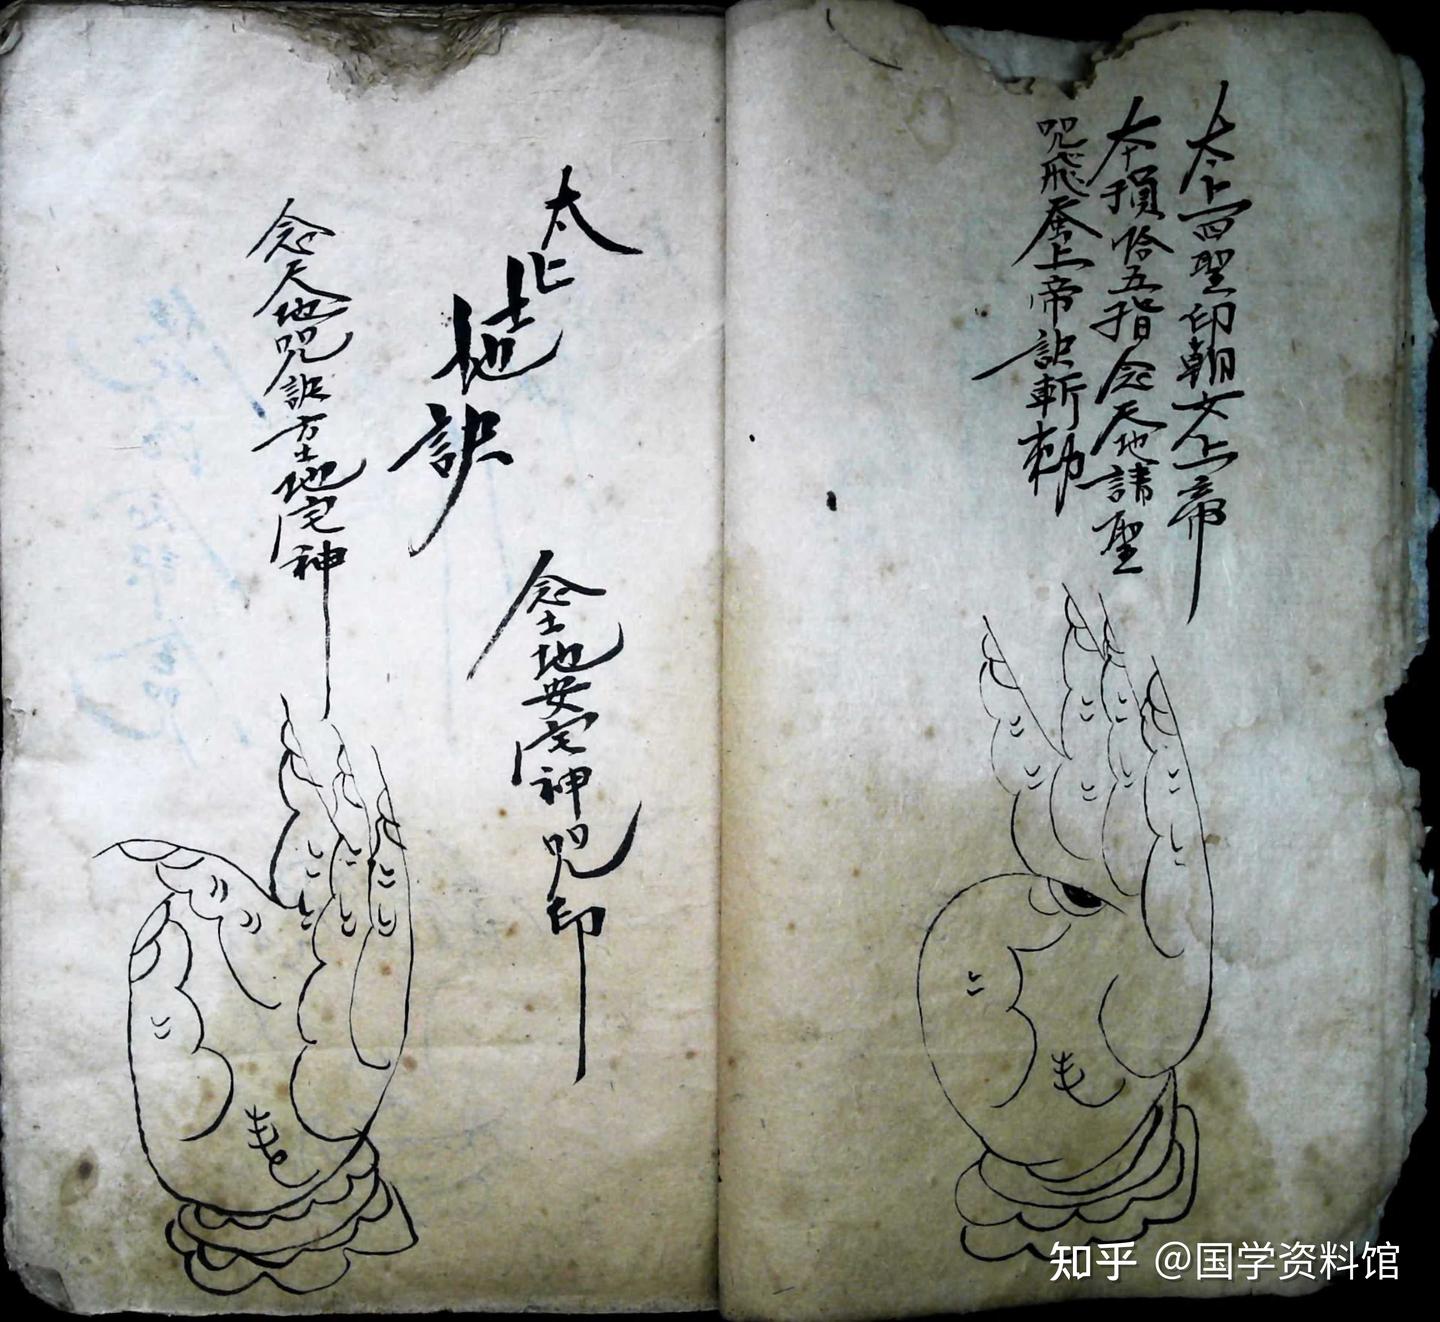 太上四聖印朝大上帝
本損哈五指念天地請聖
咒飛蚕上帝訣斬勅
太上土地訣
念土地安宅神咒印
念天地咒訣方土地宅神
知乎 @国学资料馆